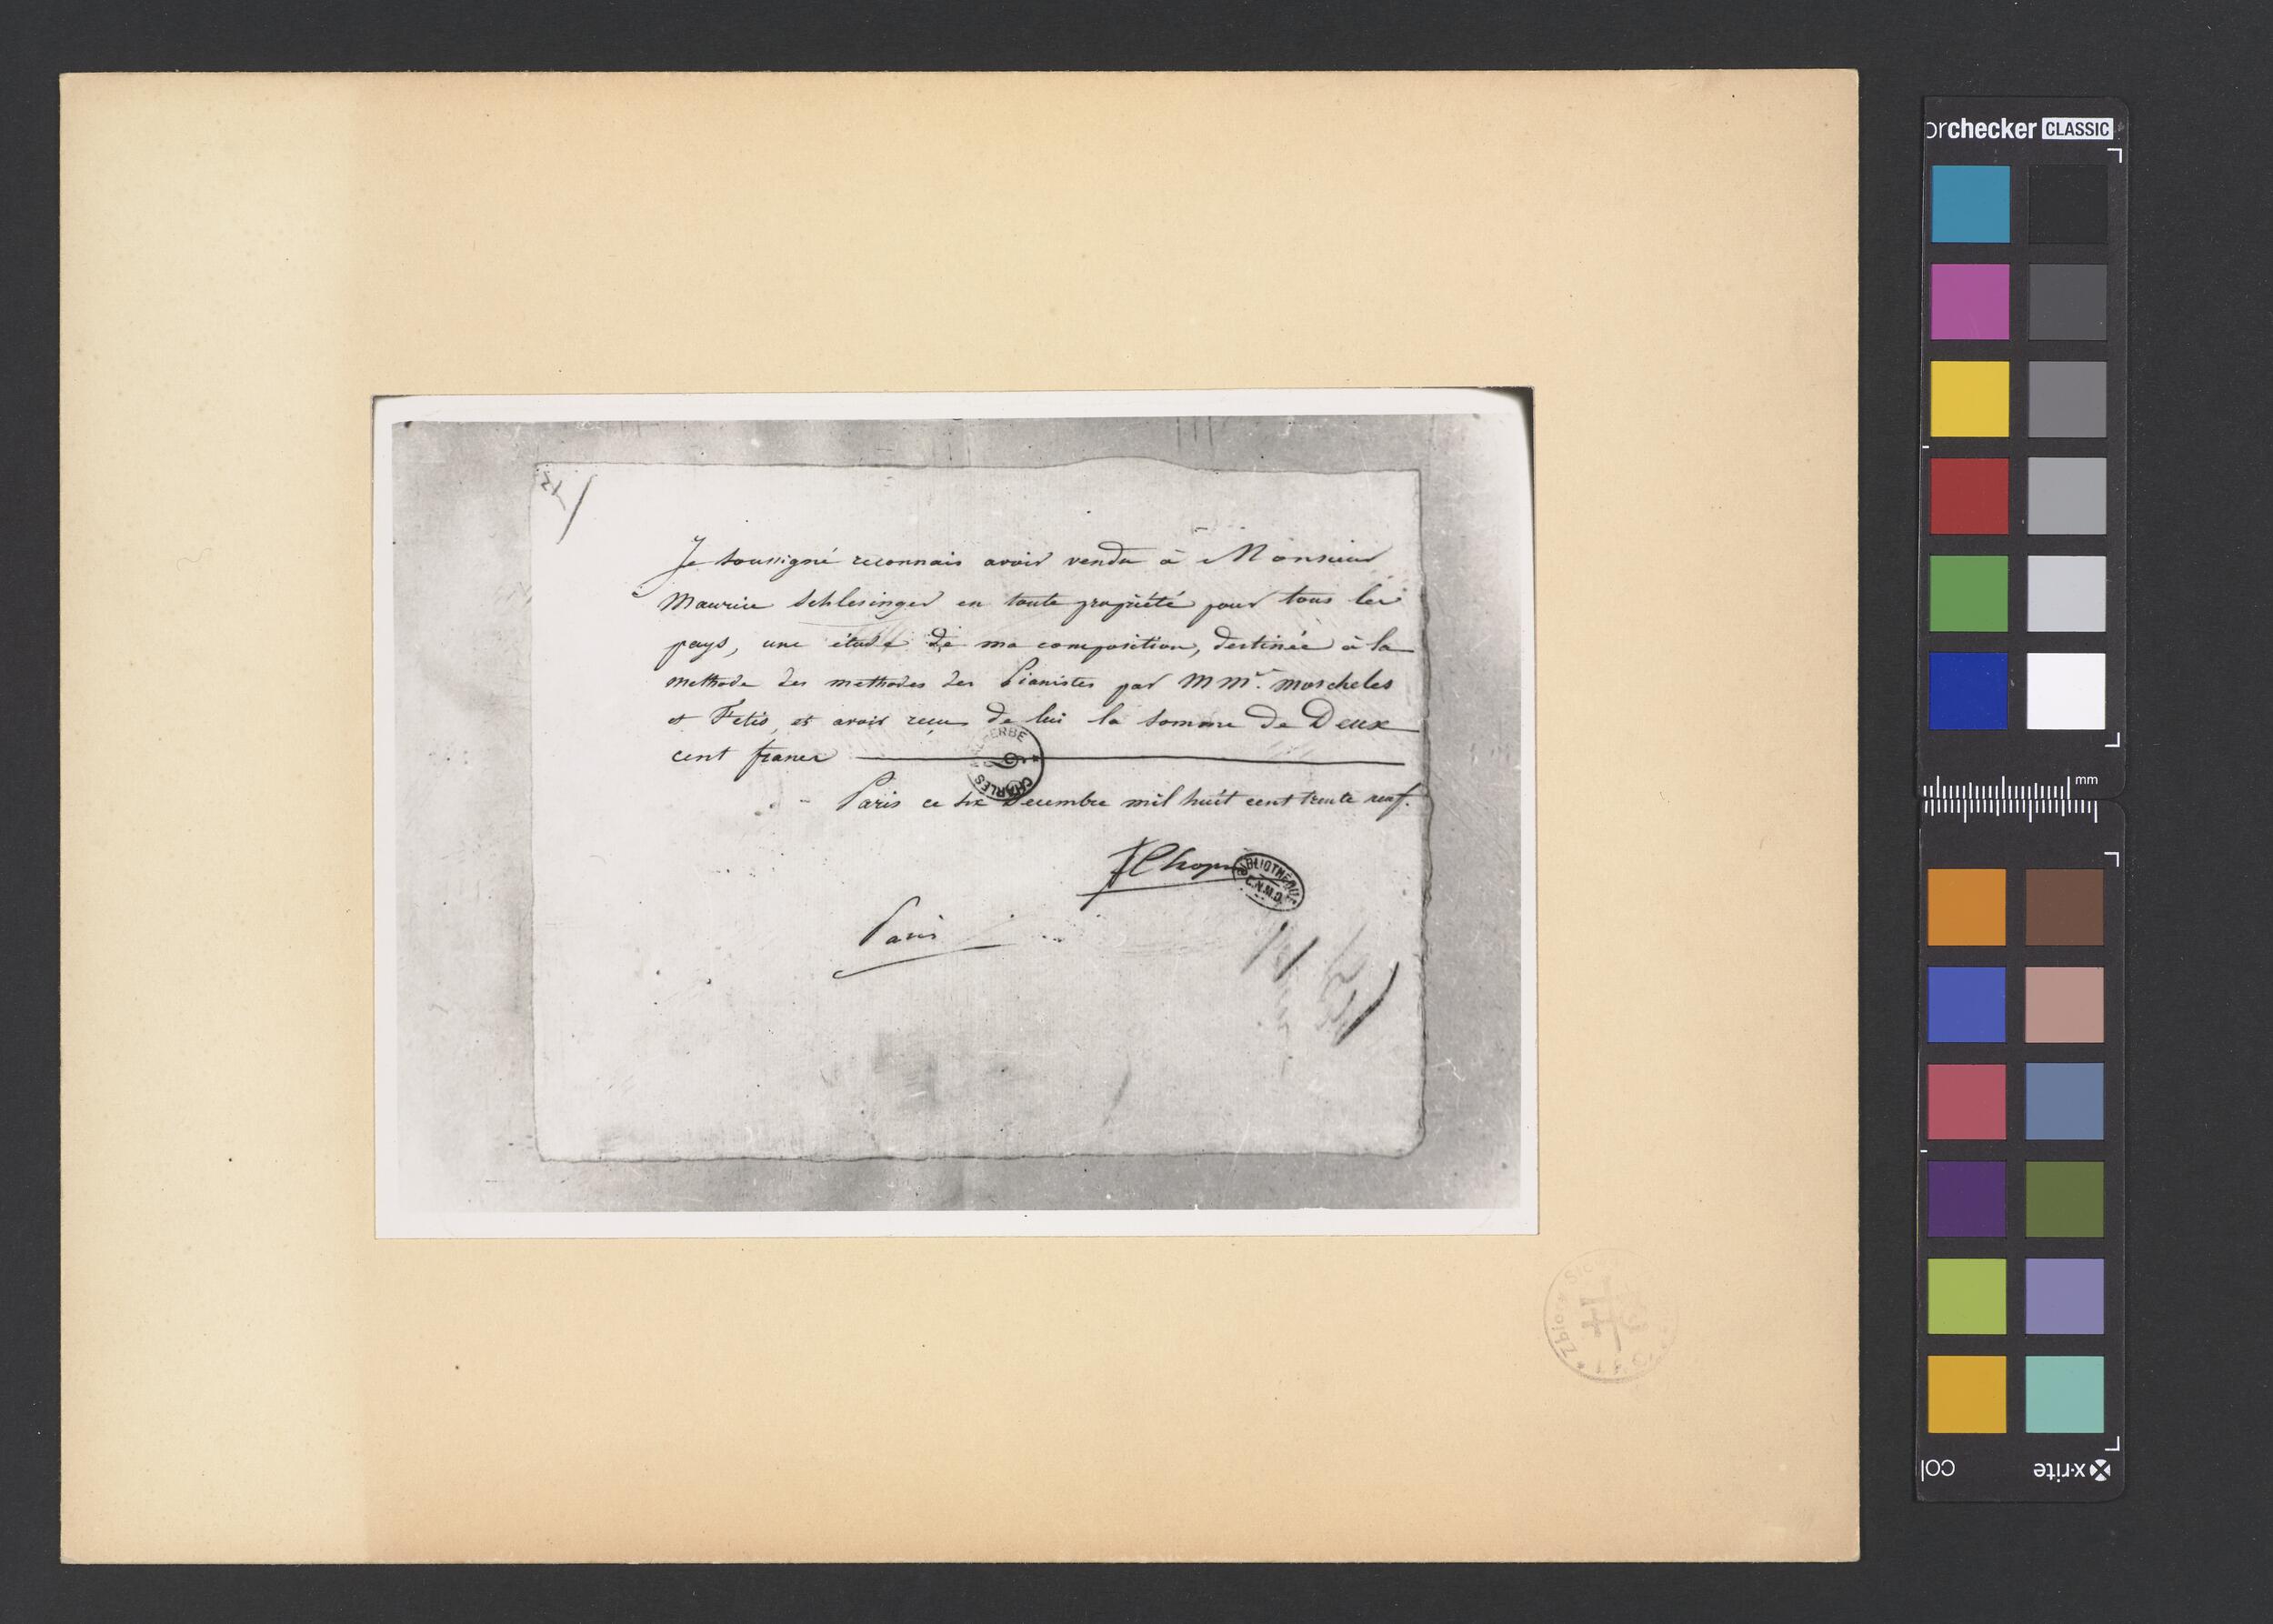 Je soussigné reconnais avoir vendu à Monsieur
Maurice Schlesinger en toute propriété pour tous les
pays, une étude de ma composition, destinée à la
methode des methodes des Pianistes par M Mrs. Moscheles
et Fetis, et avoir reçu de lui la somme de Deux
cent francs
Paris ce six Decembre mil huit cent trente neuf.
FChopin
Paris
MALHERBE
CHARLES
BIBLIOTHEQUE
C.N.M.D.
Zbiory
orchecker CLASSIC
mm
x-rite
col